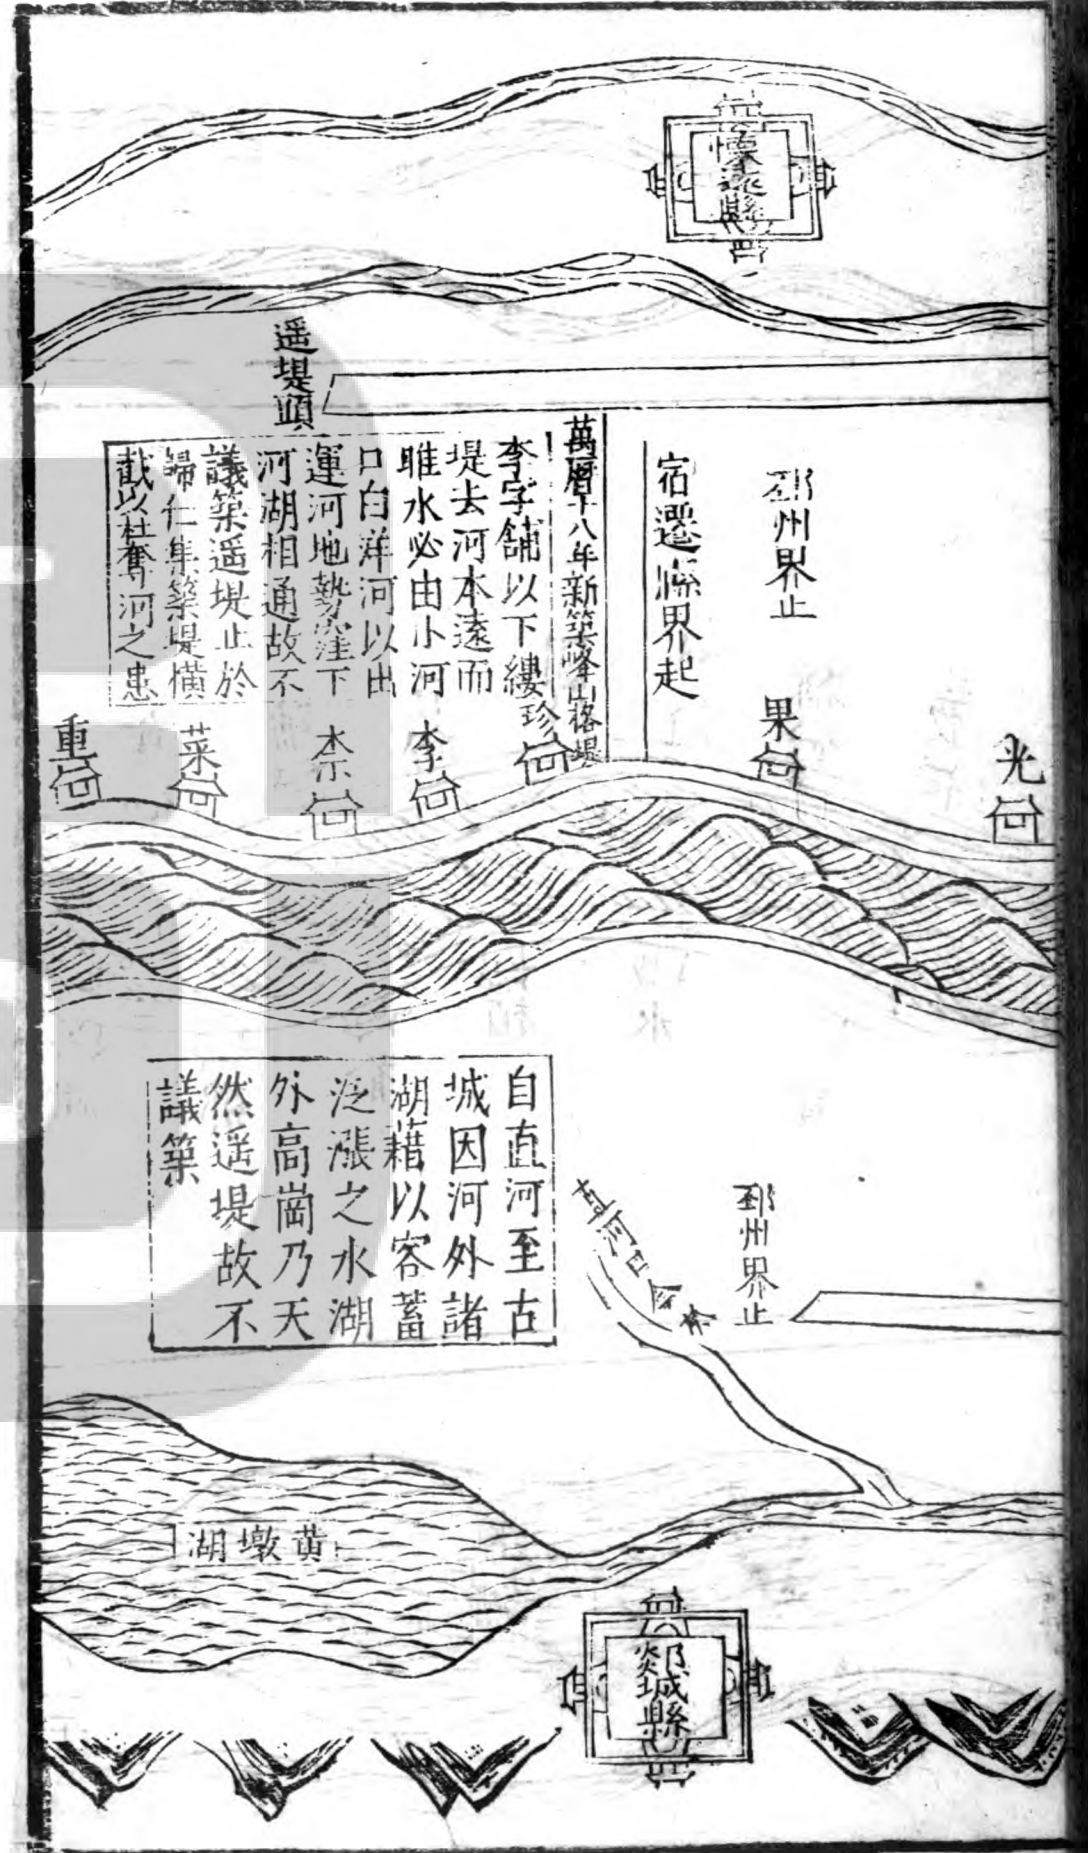 懷遠縣
遥堤頭
邳州界止
宿遷縣界起
萬曆十八年新築峰山格堤
李字舖以下縷
堤去河本遠而
睢水必由小河
口白洋河以出
運河地勢窪下
河湖相通故不
議築遥堤止於
歸仁集築堤横
截以杜奪河之患
光
果
珍
李
柰
菜
重
自直河至古
城因河外諸
湖藉以容蓄
泛漲之水湖
外高崗乃天
然遥堤故不
議築
邳州界止
直河口
黄墩湖
郯城縣